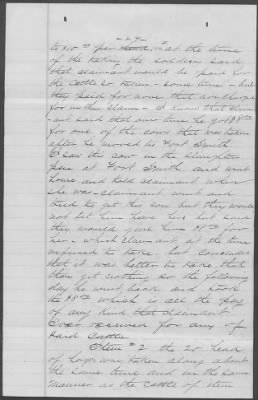 -27-
to $10 00 per head at the time
of the taking the soldiers said
that claimant would be paid for
the cattle &
they paid for none that are charge
for in this claim - I know that claim
ant said that one time he got $8 00
for one of the cows that was taken
after he moved to Fort Smith
I saw the cow in the slaughter
pen at Fort Smith and went
home and told claimant where
she was - claimant went and
tried to get the cow but they would
not let him have her but said
they would give him $8 00 for
her - which claimant at the time
refused to take but concluded
that it was better to take that
than get nothing so the following
day he went back and took
the $8 00 which is all the pay
of any kind that claimant
ever received for any of
said cattle
Item # 2 the 20 head
of hogs was taken along about
the same time and in the same
manner as the cattle of item